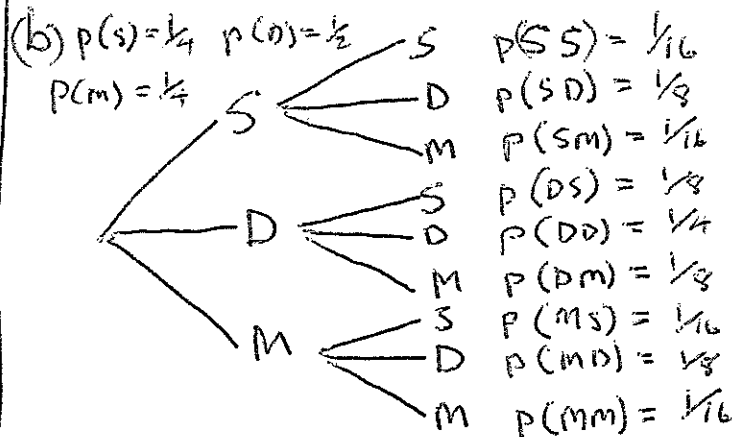 (b) p(s) = 1/4 p(D) = 1/2
p(m) = 1/4
S D M
S p(SS) = 1/16
D p(SD) = 1/8
M p(SM) = 1/16
S p(DS) = 1/8
D p(DD) = 1/4
M p(DM) = 1/8
S p(MS) = 1/16
D p(MD) = 1/8
M p(MM) = 1/16